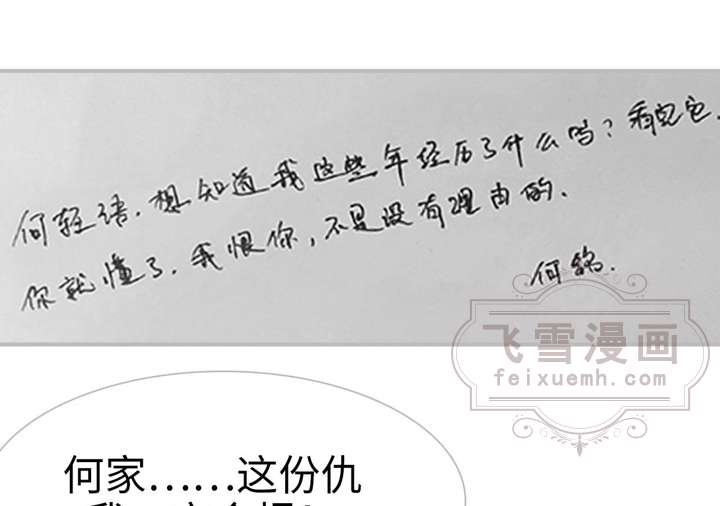 何轻语.想知道我这些年经历了什么吗?看完它.
你就懂了.我恨你,不是没有理由的.
何
飞雪漫画
feixuemh.com
何家……这份仇